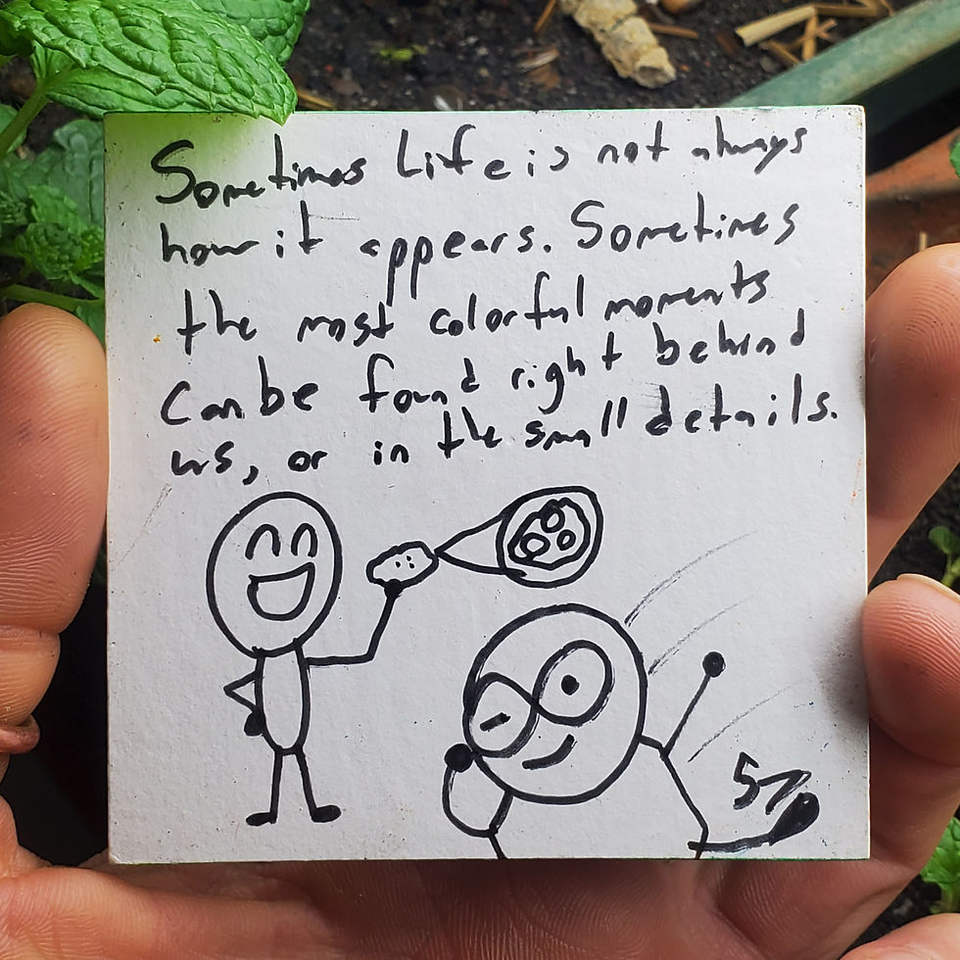 Sometimes Life is not always
how it appears. Sometimes
the most colorful moments
can be found right behind
us, or in the small details.